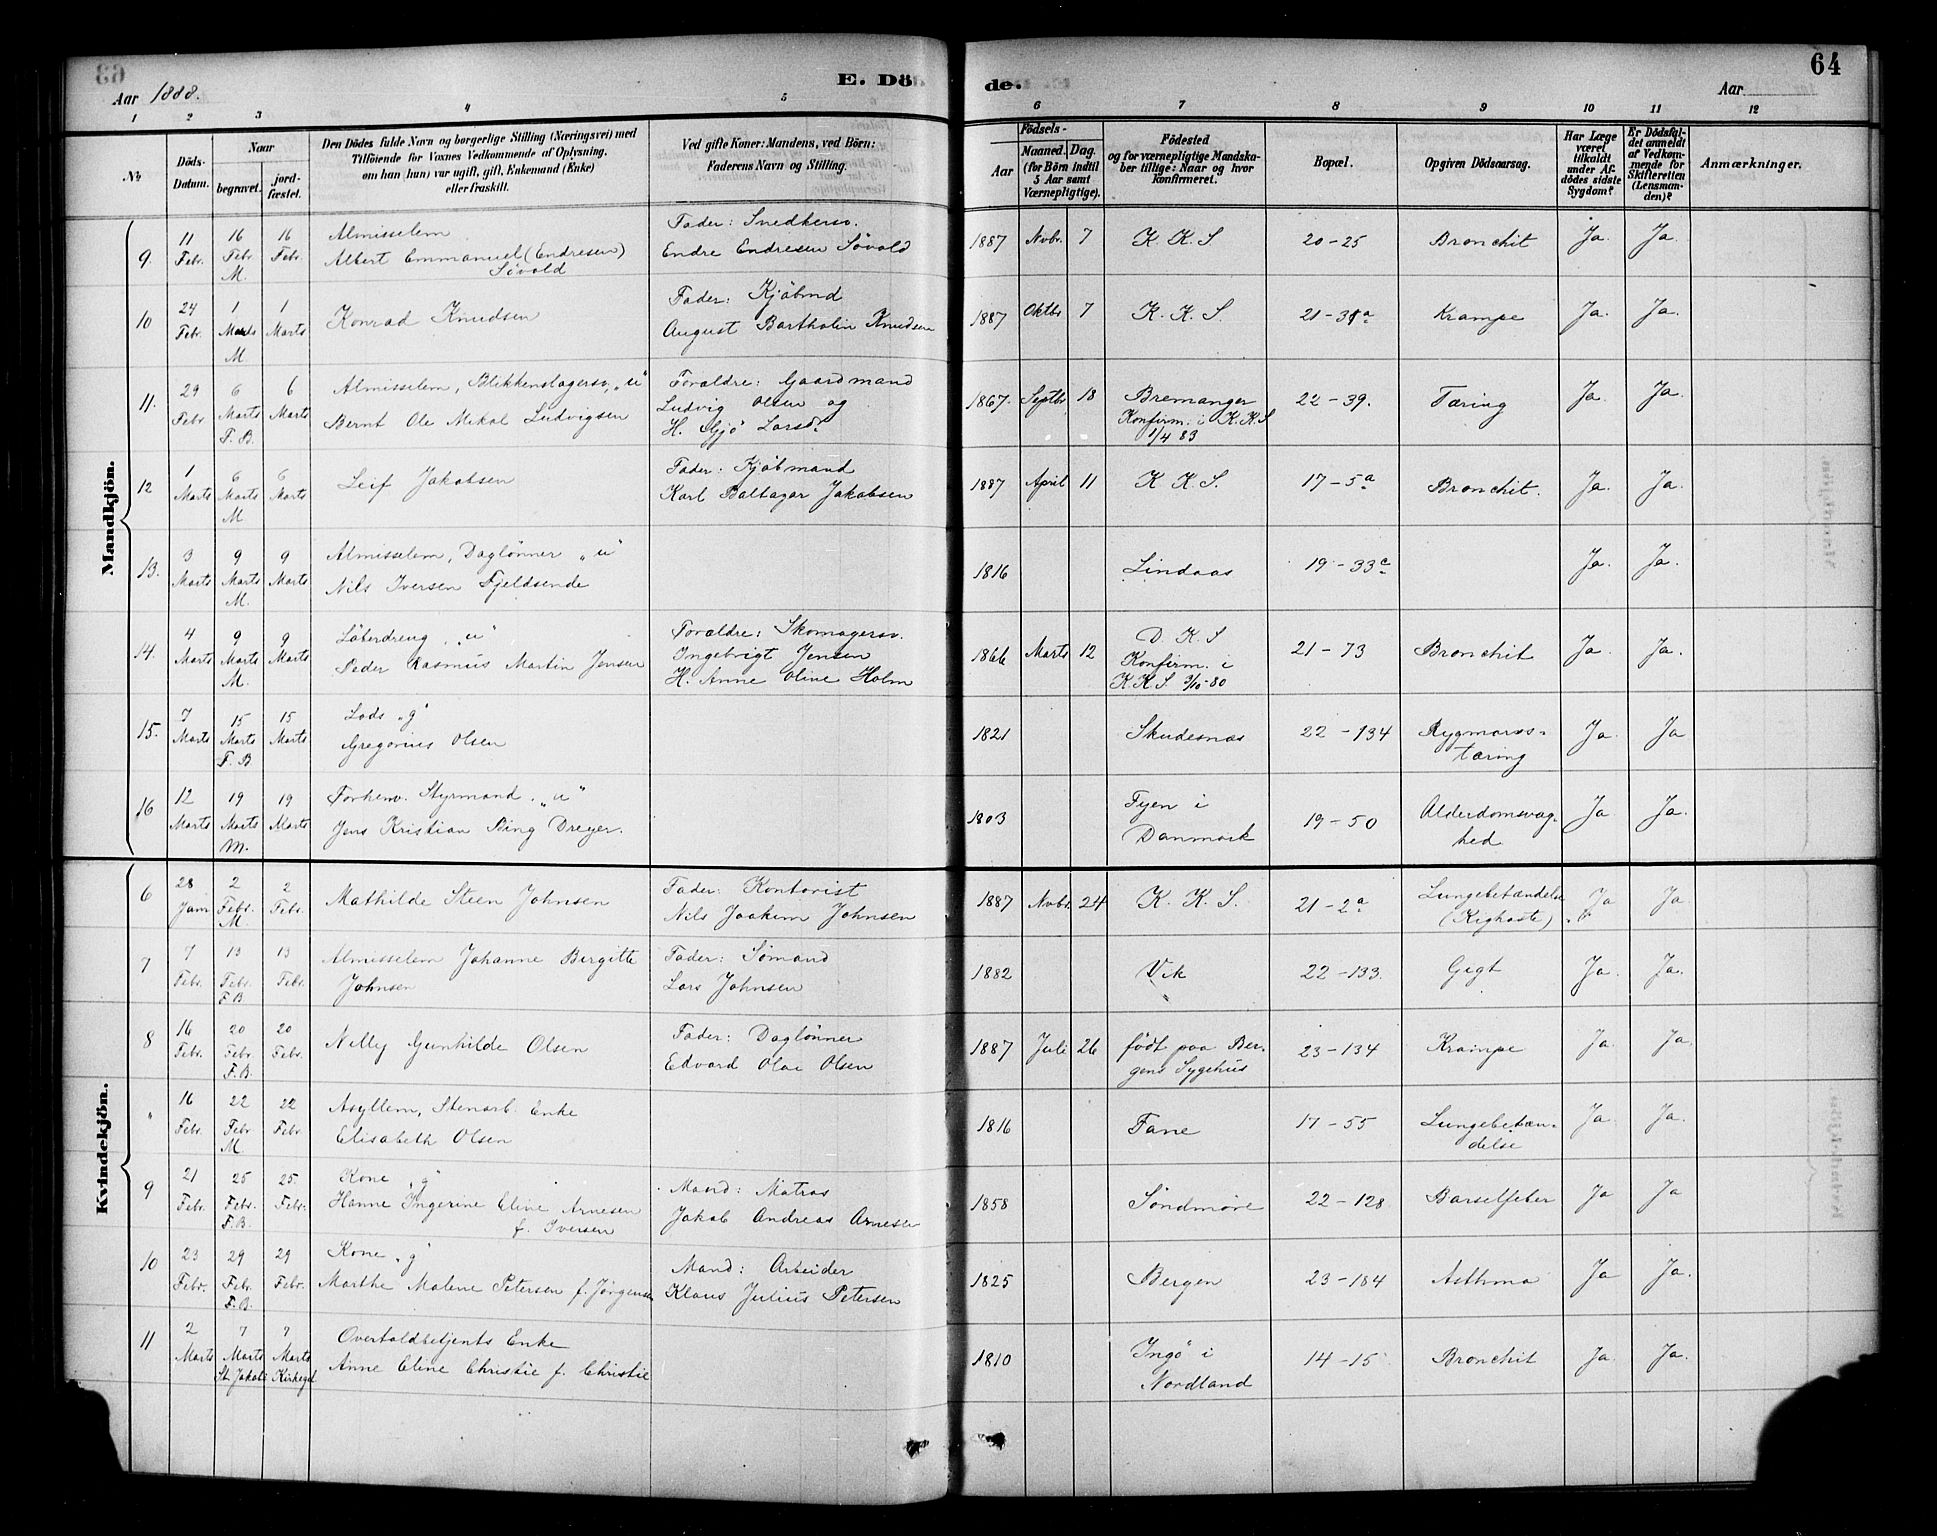 E. Dö de.
64
Aar 1888.
Aar
1 2 3 4 5 6 7 8 9 10 11 12
No
Döds-Datum.
Naar
begravet.
jord-fæstet.
Den Dödes fulde Navn og borgerlige Stilling (Næringsvei) med
Tilföiende for Voxnes Vedkommende af Oplysning,
om han (hun) var ugift, gift, Enkemand (Enke)
eller fraskilt.
Ved gifte Koner: Mandens, ved Börn:
Faderens Navn og Stilling.
Födsels-
Aar
Maaned. Dag.
(for Börn indtil
5 Aar samt
Værnepligtige).
Födested
og for værnepligtige Mandska-
ber tillige: Naar og hvor
konfirmeret.
Bopæl.
Opgiven Dödsaarsag.
Har Læge
været
tilkaldt
under Af-
dödes sidste
Sygdom?
Er Dödsfal-
det anmeldt
af Vedkom-
mende for
Skifteretten
(Lensman-
den)?
Anmærkninger.
Mandkjön.
9. 11 Febr. 16 Febr. M. 16 Febr. Almisselem
Albert Emmanuel (Endresen)
Søvold
Fader: Snedkersv.
Endre Endresen Søvold
1887 Novbr. 7 K. K. S 20-25 Bronchit Ja. Ja.
10 24 Febr. 1 Marts M 1 Marts Konrad Knudsen
Fader: Kjøbmd
August Bartholin Knudsen
1887 Oktbr 7 K. K. S. 21-31a Krampe Ja. Ja.
11. 29 Febr 6 Marts F. B. 6 Marts Almisselem, Blikkenslagersv, „u“
Bernt Ole Mikal Ludvigsen
Forældre: Gaardmand
Ludvig Olsen og
H. Gjø Larsdr
1867. Septbr 18 Bremanger
Konfirm. i K. K. S
1/4 83
22-39. Tæring Ja. Ja.
12 1 Marts 6 Marts M 6 Marts Leif Jakobsen
Fader: Kjøbmand
Karl Baltazar Jakobsen
1887 April 11 K K. S. 17-5a Bronchit. Ja. Ja.
13. 3 Marts 9 Marts M. 9 Marts. Almisselem, Dagløner „u“
Nils Iversen Fjeldsende
1816 Lindaas 19-33c Ja. Ja.
14. 4 Marts 9 Marts M. 9 Marts. Løberdreng, „u“
Peder Rasmus Martin Jensen
Forældre: Skomagersv.
Ingebrigt Jensen
H. Anne Oline Holm
1866 Marts 12 D. K. S
Konfirm. i
K. K. S 3/10-80
21-73 Bronchit Ja. Ja.
15. 7 Marts 15 Marts F. B 15 Marts Lods „g“
Gregorius Olsen
1821 Skudesnæs 22-134 Rygmarvs-
tæring Ja. Ja
16 12 Marts 19 Marts M. 19 Marts Forhenv. Styrmand. „u“
Jens Kristian Bing Dreyer.
1803 Fyen i
Danmark 19-50 Alderdomsvag-
hed Ja Ja.
Kvindekjön.
6 28 Janr 2 Febr. M. 2 Febr. Mathilde Steen Johnsen
Fader: Kontorist
Nils Joakim Johnsen
1887 Novbr. 24 K. K. S. 21-2a Lungebetændelse
(Kighoste) Ja Ja
7 7 Febr. 13 Febr. F. B 13 Febr. Almisselem Johanne Birgitte
Johnsen
Fader: Sømand
Lars Johnsen
1882 Vik 22-133. Gigt Ja. Ja.
8 16 Febr. 20 Febr. F. B. 20 Febr. Nelly Gunhilde Olsen
Fader: Dagløner
Edvard Olai Olsen
1887 Juli 26 født paa Ber-
gens Sygehus 23-134 Krampe Ja. Ja.
" 16 Febr. 22 Febr M. 22 Febr. Asyllem, Stenarb. Enke
Elisabeth Olsen
1816 Fane 17-55 Lungebetæn-
delse Ja. Ja.
9 21 Febr. 25 Febr. F. B. 25. Febr. Kone „g“
Hanne Ingerine Eline Arnesen
f. Iversen
Mand: Matros
Jakob Andreas Arnesen
1858 Søndmøre 22-128 Barselfeber Ja Ja
10 23 Febr. 29 Febr. F. B. 29 Febr. Kone „g“
Marthe Malene Petersen f. Jørgensen
Mand: Arbeider
Klaus Julius Petersen
1825 Bergen 23-184 Asthma Ja Ja.
11 2 Marts 7 Marts 7 Marts St Jakobs Kirkegd Overtoldbetjents Enke
Anne Eline Christie f. Christie
1810 Ingø i
Nordland 14-15 Bronchit Ja. Ja.